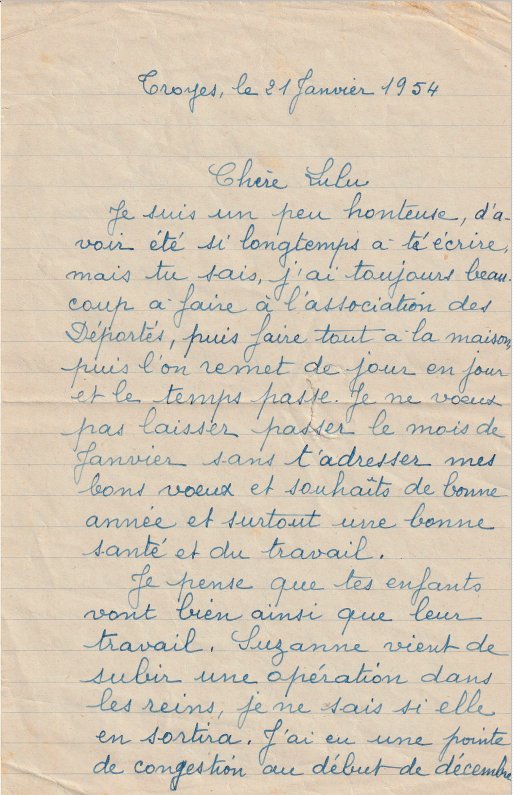 Troyes, le 21 Janvier 1954
Chère Lulu
Je suis un peu honteuse, d'a-
voir été si longtemps à t'écrire,
mais tu sais, j'ai toujours beau-
coup à faire à l'association des
Déportés, puis faire tout à la maison,
puis l'on remet de jour en jour
et le temps passe. Je ne voeux
pas laisser passer le mois de
Janvier sans t'adresser mes
bons voeux et souhaîts de bonne
année et surtout une bonne
santé et du travail.
Je pense que tes enfants
vont bien ainsi que leur
travail. Suzanne vient de
subir une opération dans
les reins, je ne sais si elle
en sortira. J'ai eu une pointe
de congestion au début de décembre